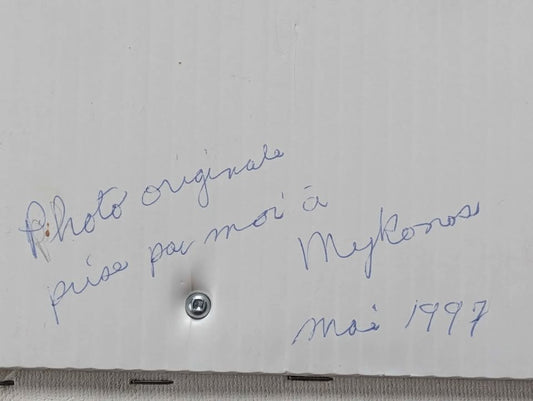 Photo originale
prise par moi à
Mykonos
mai 1997